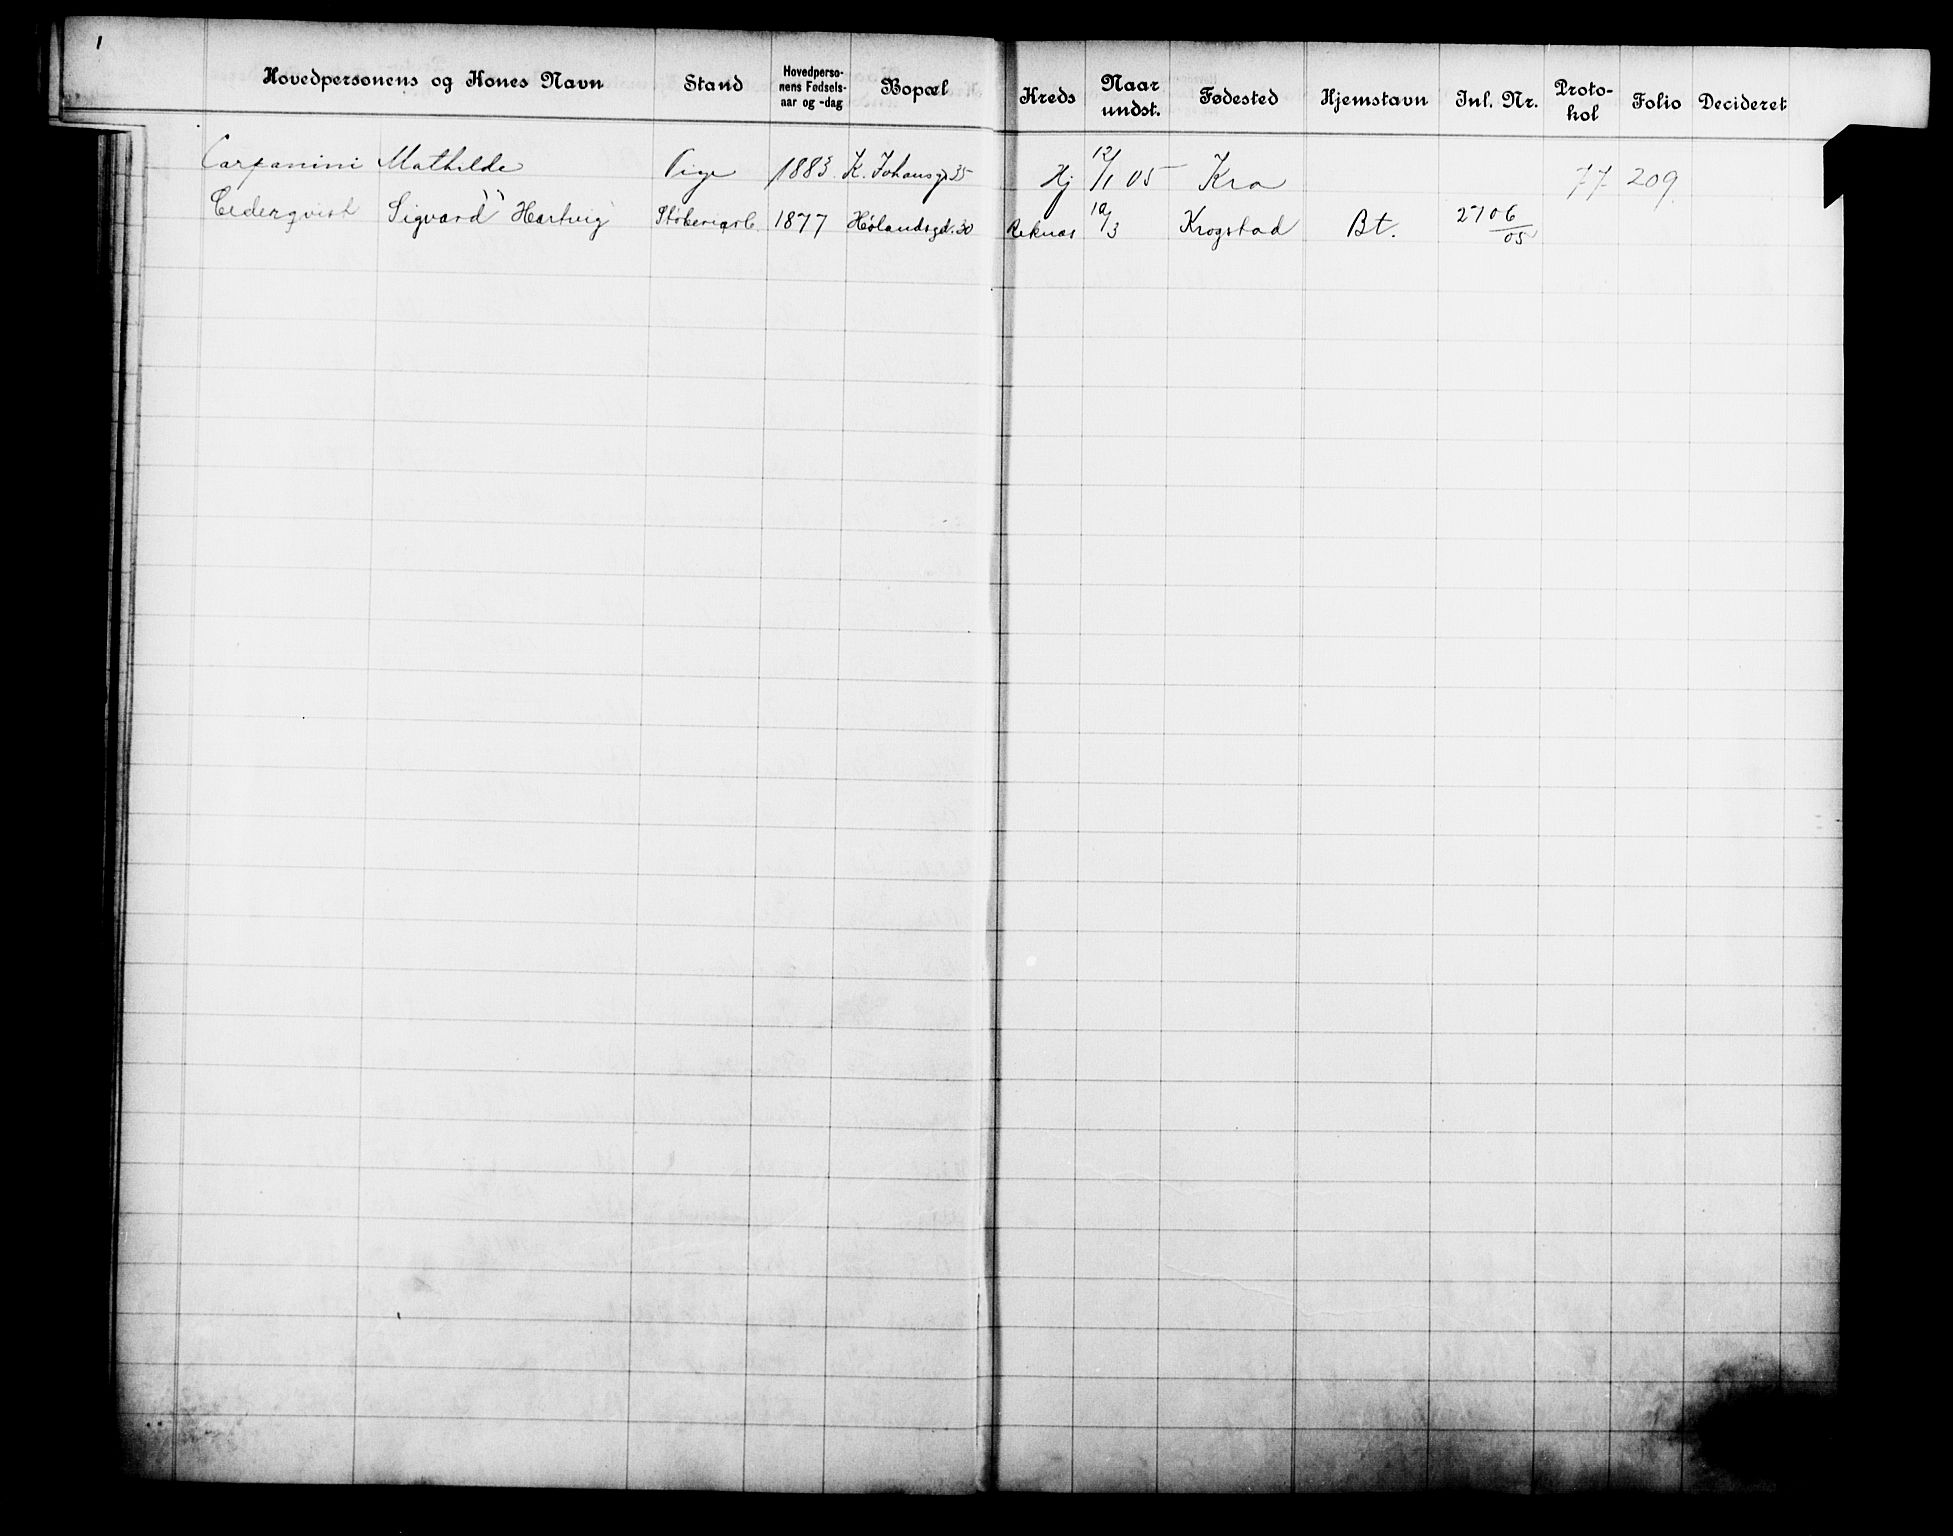 1
Hovedpersonens og Kones Navn Stand Hovedperso-nens Fødsels-aar og -dag Bopæl Kreds Naar undst. Fødested Hjemstavn Inl. Nr. Proto-kol Folio Decideret
Carpanini Mathilde Pige 1883 K. Johansgd 35 Hj 12/1 05 Kra 77 209
Cederqvist Sigvard Hartvig Støberiarb. 1877 Hølandsgd. 30 10/3 Krogstad Bt. 2706/05